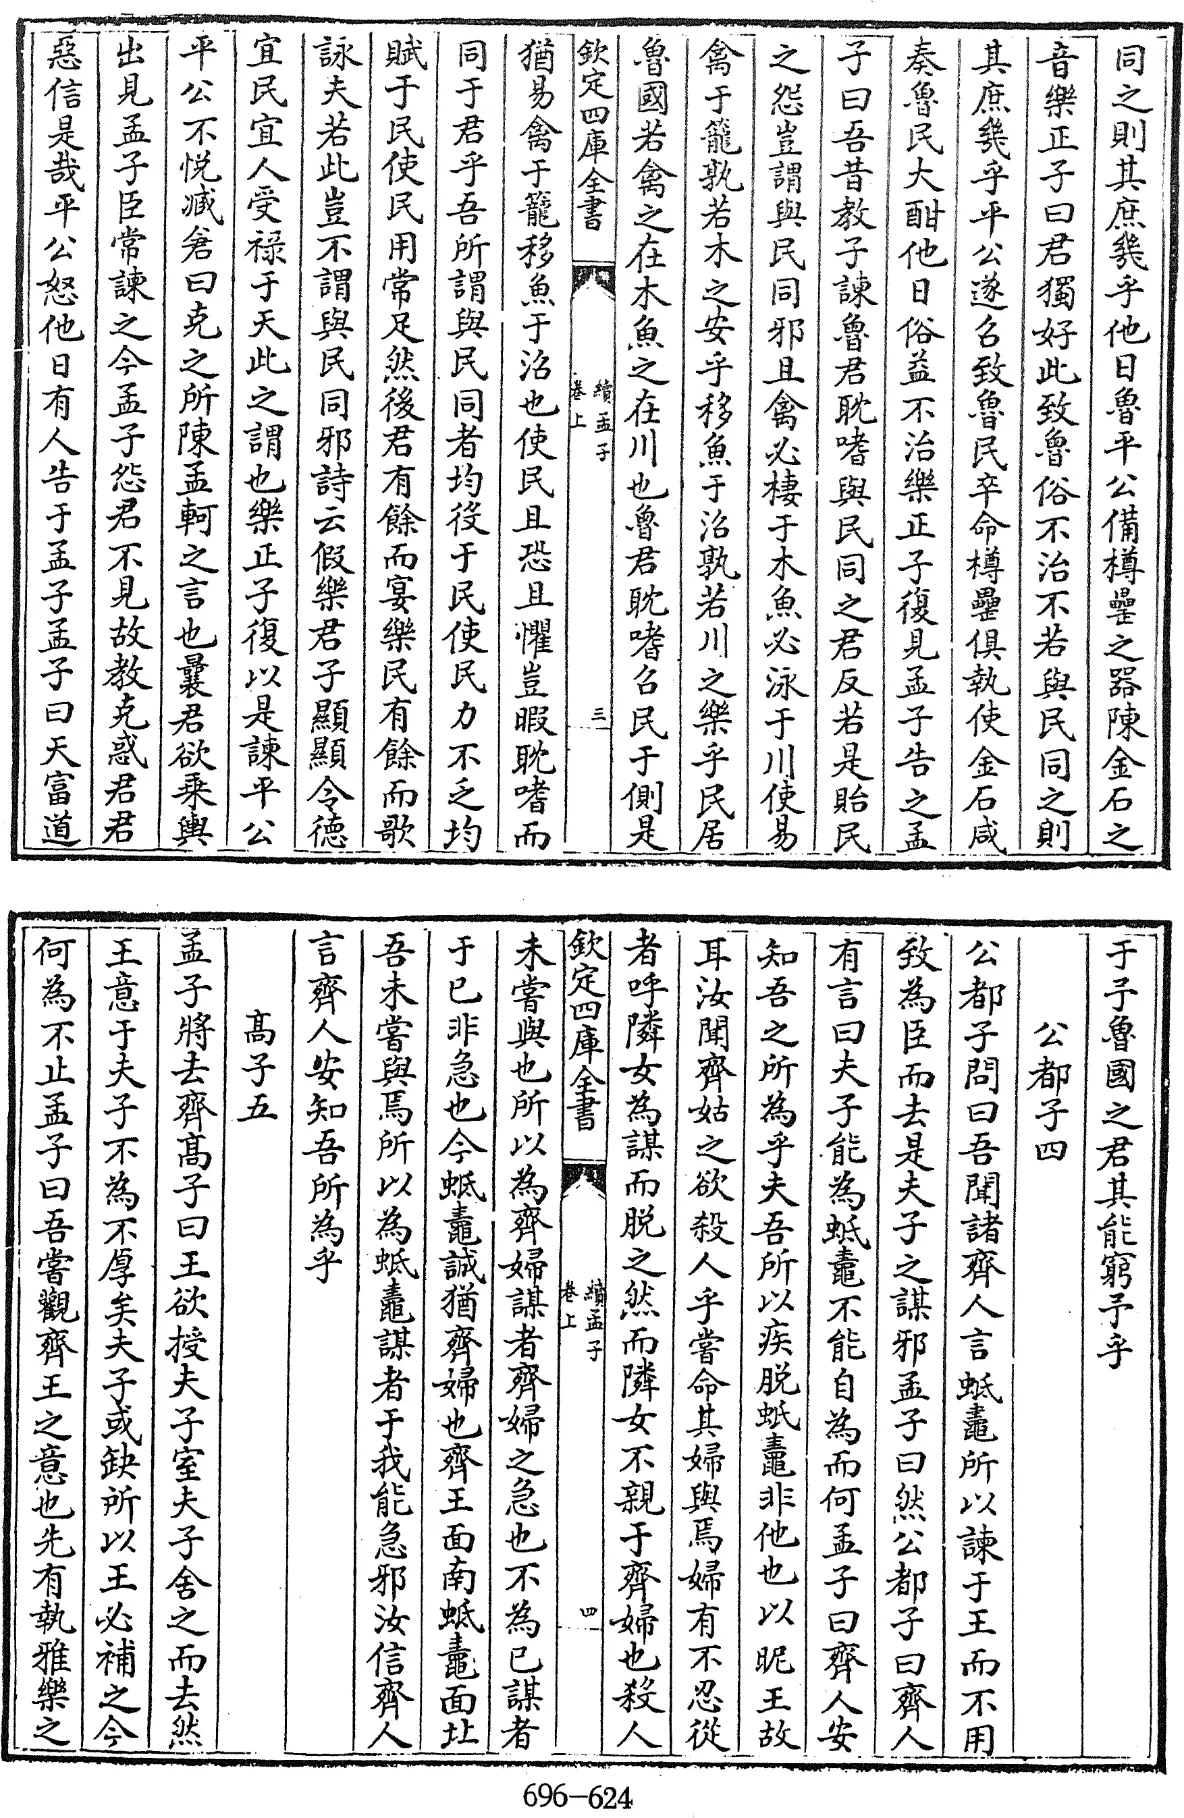 同之則其庶幾乎他日魯平公備樽罍之器陳金石之
音樂正子曰君獨好此致魯俗不治不若與民同之則
其庶幾乎平公遂召致魯民卒命樽罍俱執使金石咸
奏魯民大酣他日俗益不治樂正子復見孟子告之孟
子曰吾昔教子諫魯君耽嗜與民同之君反若是貽民
之怨豈謂與民同邪且禽必棲于木魚必泳于川使易
禽于籠孰若木之安乎移魚于沼孰若川之樂乎民居
魯國若禽之在木魚之在川也魯君耽嗜召民于側是
欽定四庫全書
續孟子
卷上
三
猶易禽于籠移魚于沼也使民且恐且懼豈暇耽嗜而
同于君乎吾所謂與民同者均役于民使民力不乏均
賦于民使民用常足然後君有餘而宴樂民有餘而歌
詠夫若此豈不謂與民同邪詩云假樂君子顯顯令德
宜民宜人受祿于天此之謂也樂正子復以是諫平公
平公不悅臧倉曰克之所陳孟軻之言也曩君欲乘輿
出見孟子臣常諫之今孟子怨君不見故教克惑君君
惡信是哉平公怒他日有人告于孟子孟子曰天富道
于予魯國之君其能窮予乎
公都子四
公都子問曰吾聞諸齊人言蚳鼃所以諫于王而不用
致為臣而去是夫子之謀邪孟子曰然公都子曰齊人
有言曰夫子能為蚳鼃不能自為而何孟子曰齊人安
知吾之所為乎夫吾所以疾脫蚳鼃非他也以昵王故
耳汝聞齊姑之欲殺人乎嘗命其婦與焉婦有不忍從
者呼隣女為謀而脫之然而隣女不親于齊婦也殺人
欽定四庫全書
續孟子
卷上
四
未嘗與也所以為齊婦謀者齊婦之急也不為已謀者
于已非急也今蚳鼃誠猶齊婦也齊王面南蚳鼃面北
吾未嘗與焉所以為蚳鼃謀者于我能急邪汝信齊人
言齊人安知吾所為乎
高子五
孟子將去齊高子曰王欲授夫子室夫子舍之而去然
王意于夫子不為不厚矣夫子或缺所以王必補之今
何為不止孟子曰吾嘗觀齊王之意也先有執雅樂之
696-624